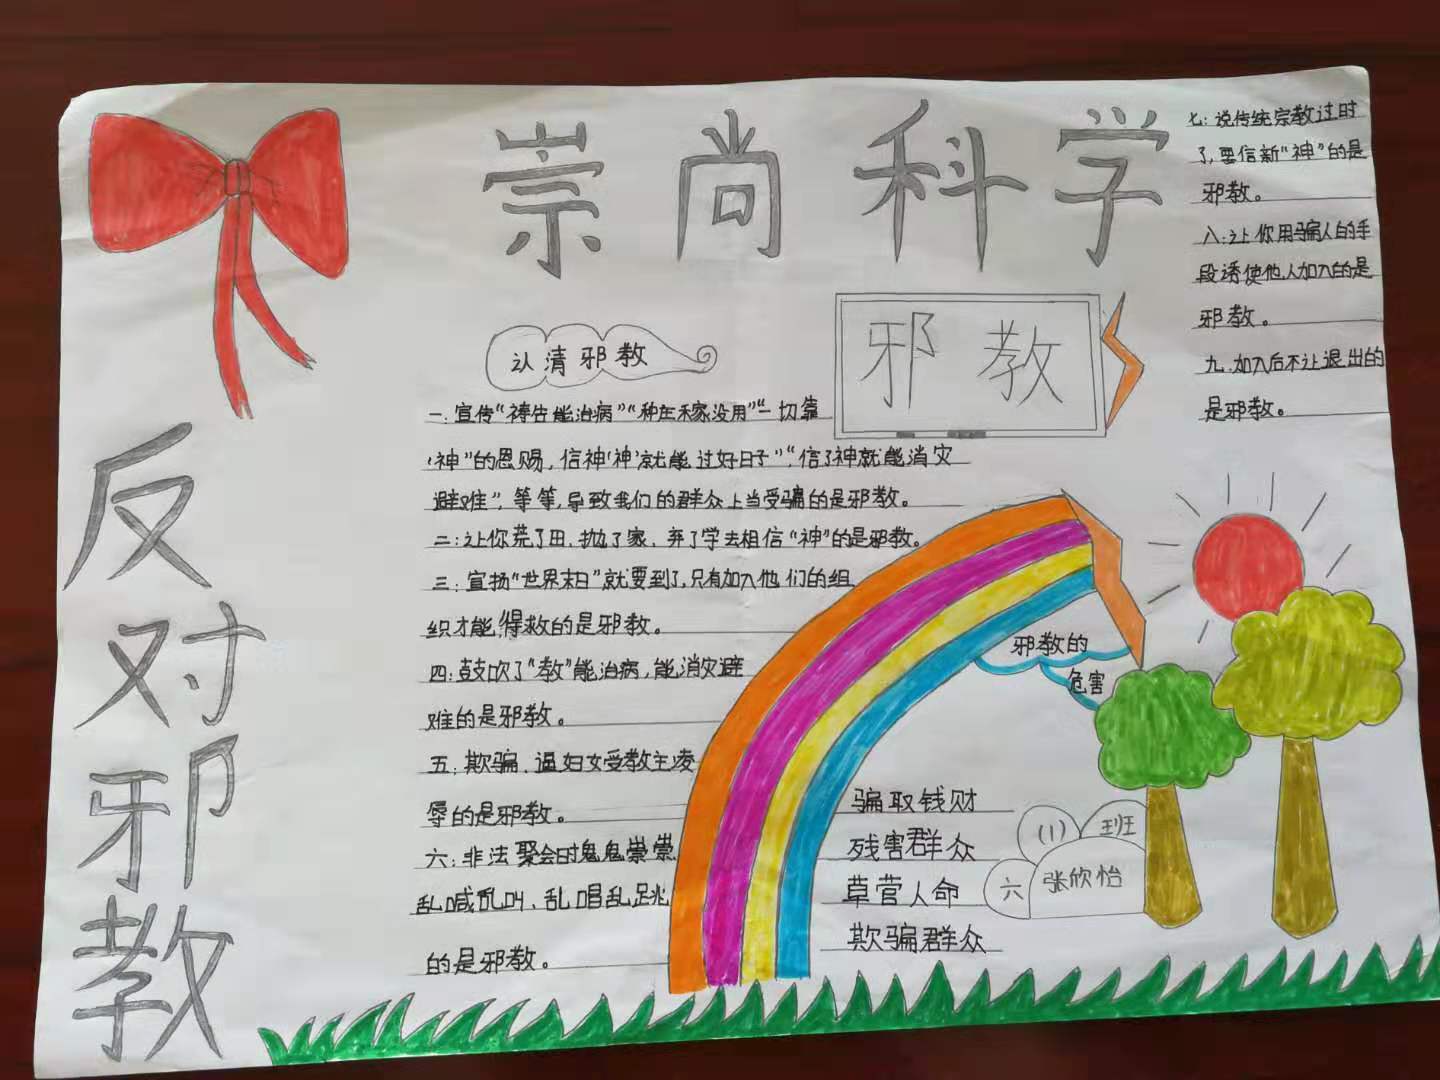 崇尚科学
反对邪教
邪教
认清邪教
一:宣传“祷告能治病”“种庄禾家没用”“一切靠
“神”的恩赐,信神“神”就能过好日子”“,信了神就能消灾
避难”,等等,导致我们的群众上当受骗的是邪教。
二:让你荒了田、抛了家、弃了学去相信“神”的是邪教。
三:宣扬“世界末日”就要到了,只有加入他们的组
织才能得救的是邪教。
四:鼓吹了“教”能治病,能消灾避
难的是邪教。
五:欺骗、逼妇女受教主凌
辱的是邪教。
六:非法聚会时鬼鬼祟祟
乱喊乱叫、乱唱乱跳
的是邪教。
七:说传统宗教过时
了,要信新“神”的是
邪教。
八:让你用骗人的手
段诱使他人加入的是
邪教。
九.加入后不让退出的
是邪教。
邪教的
危害
骗取钱财
残害群众
草菅人命
欺骗群众
六(1)班
张欣怡